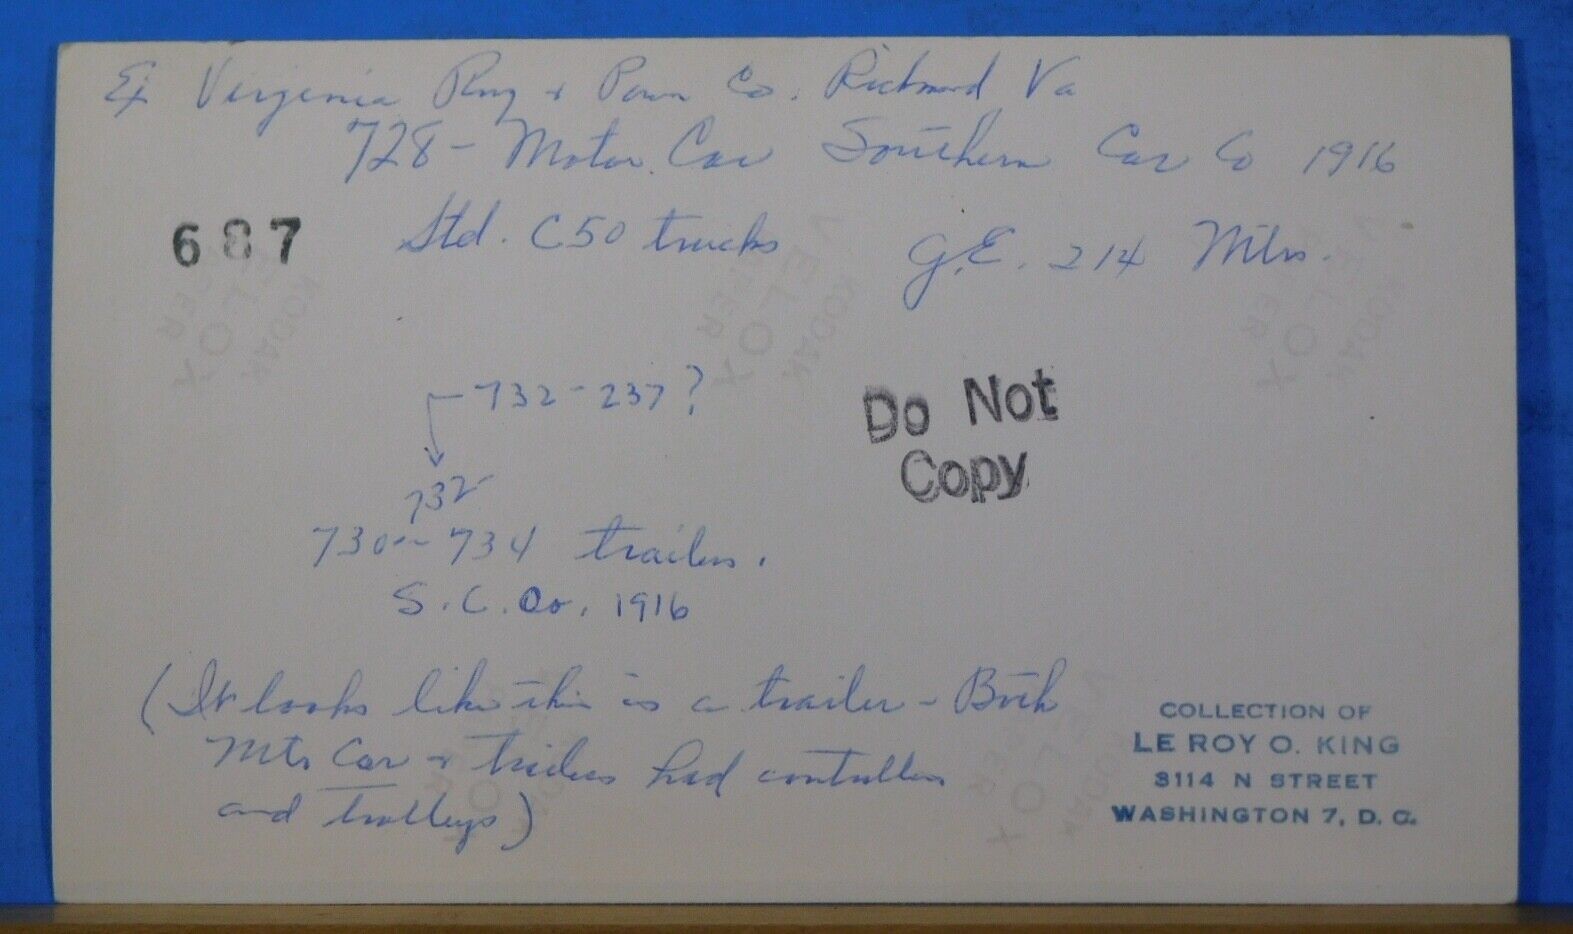 Ex Virginia Rwy + Power Co. Richmond Va
728 - Motor Car Southern Car Co 1916
687
Std. C50 trucks G.E. 214 Mtrs.
732 - 237?
Do Not
Copy
732
730 - 734 trailers.
S. C. Co. 1916
(It looks like this is a trailer - Both
Mtr Car + trailers had controllers
and trolleys)
COLLECTION OF
LE ROY O. KING
3114 N STREET
WASHINGTON 7, D. C.
VELOX
KODAK